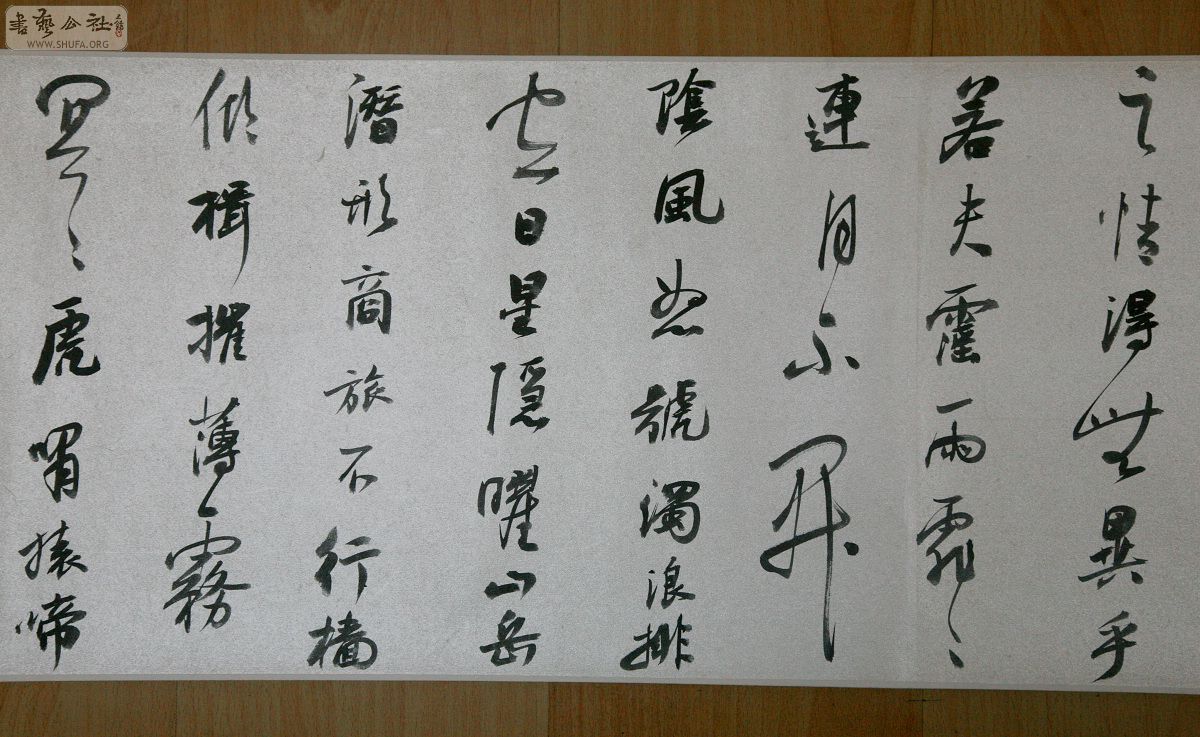 書藝公社
WWW.SHUFA.ORG
之情得無異乎
若夫霪雨霏〻
連月不開
陰風怒號濁浪排
空日星隱曜山岳
潛形商旅不行檣
傾楫摧薄霧
冥〻虎嘯猿啼